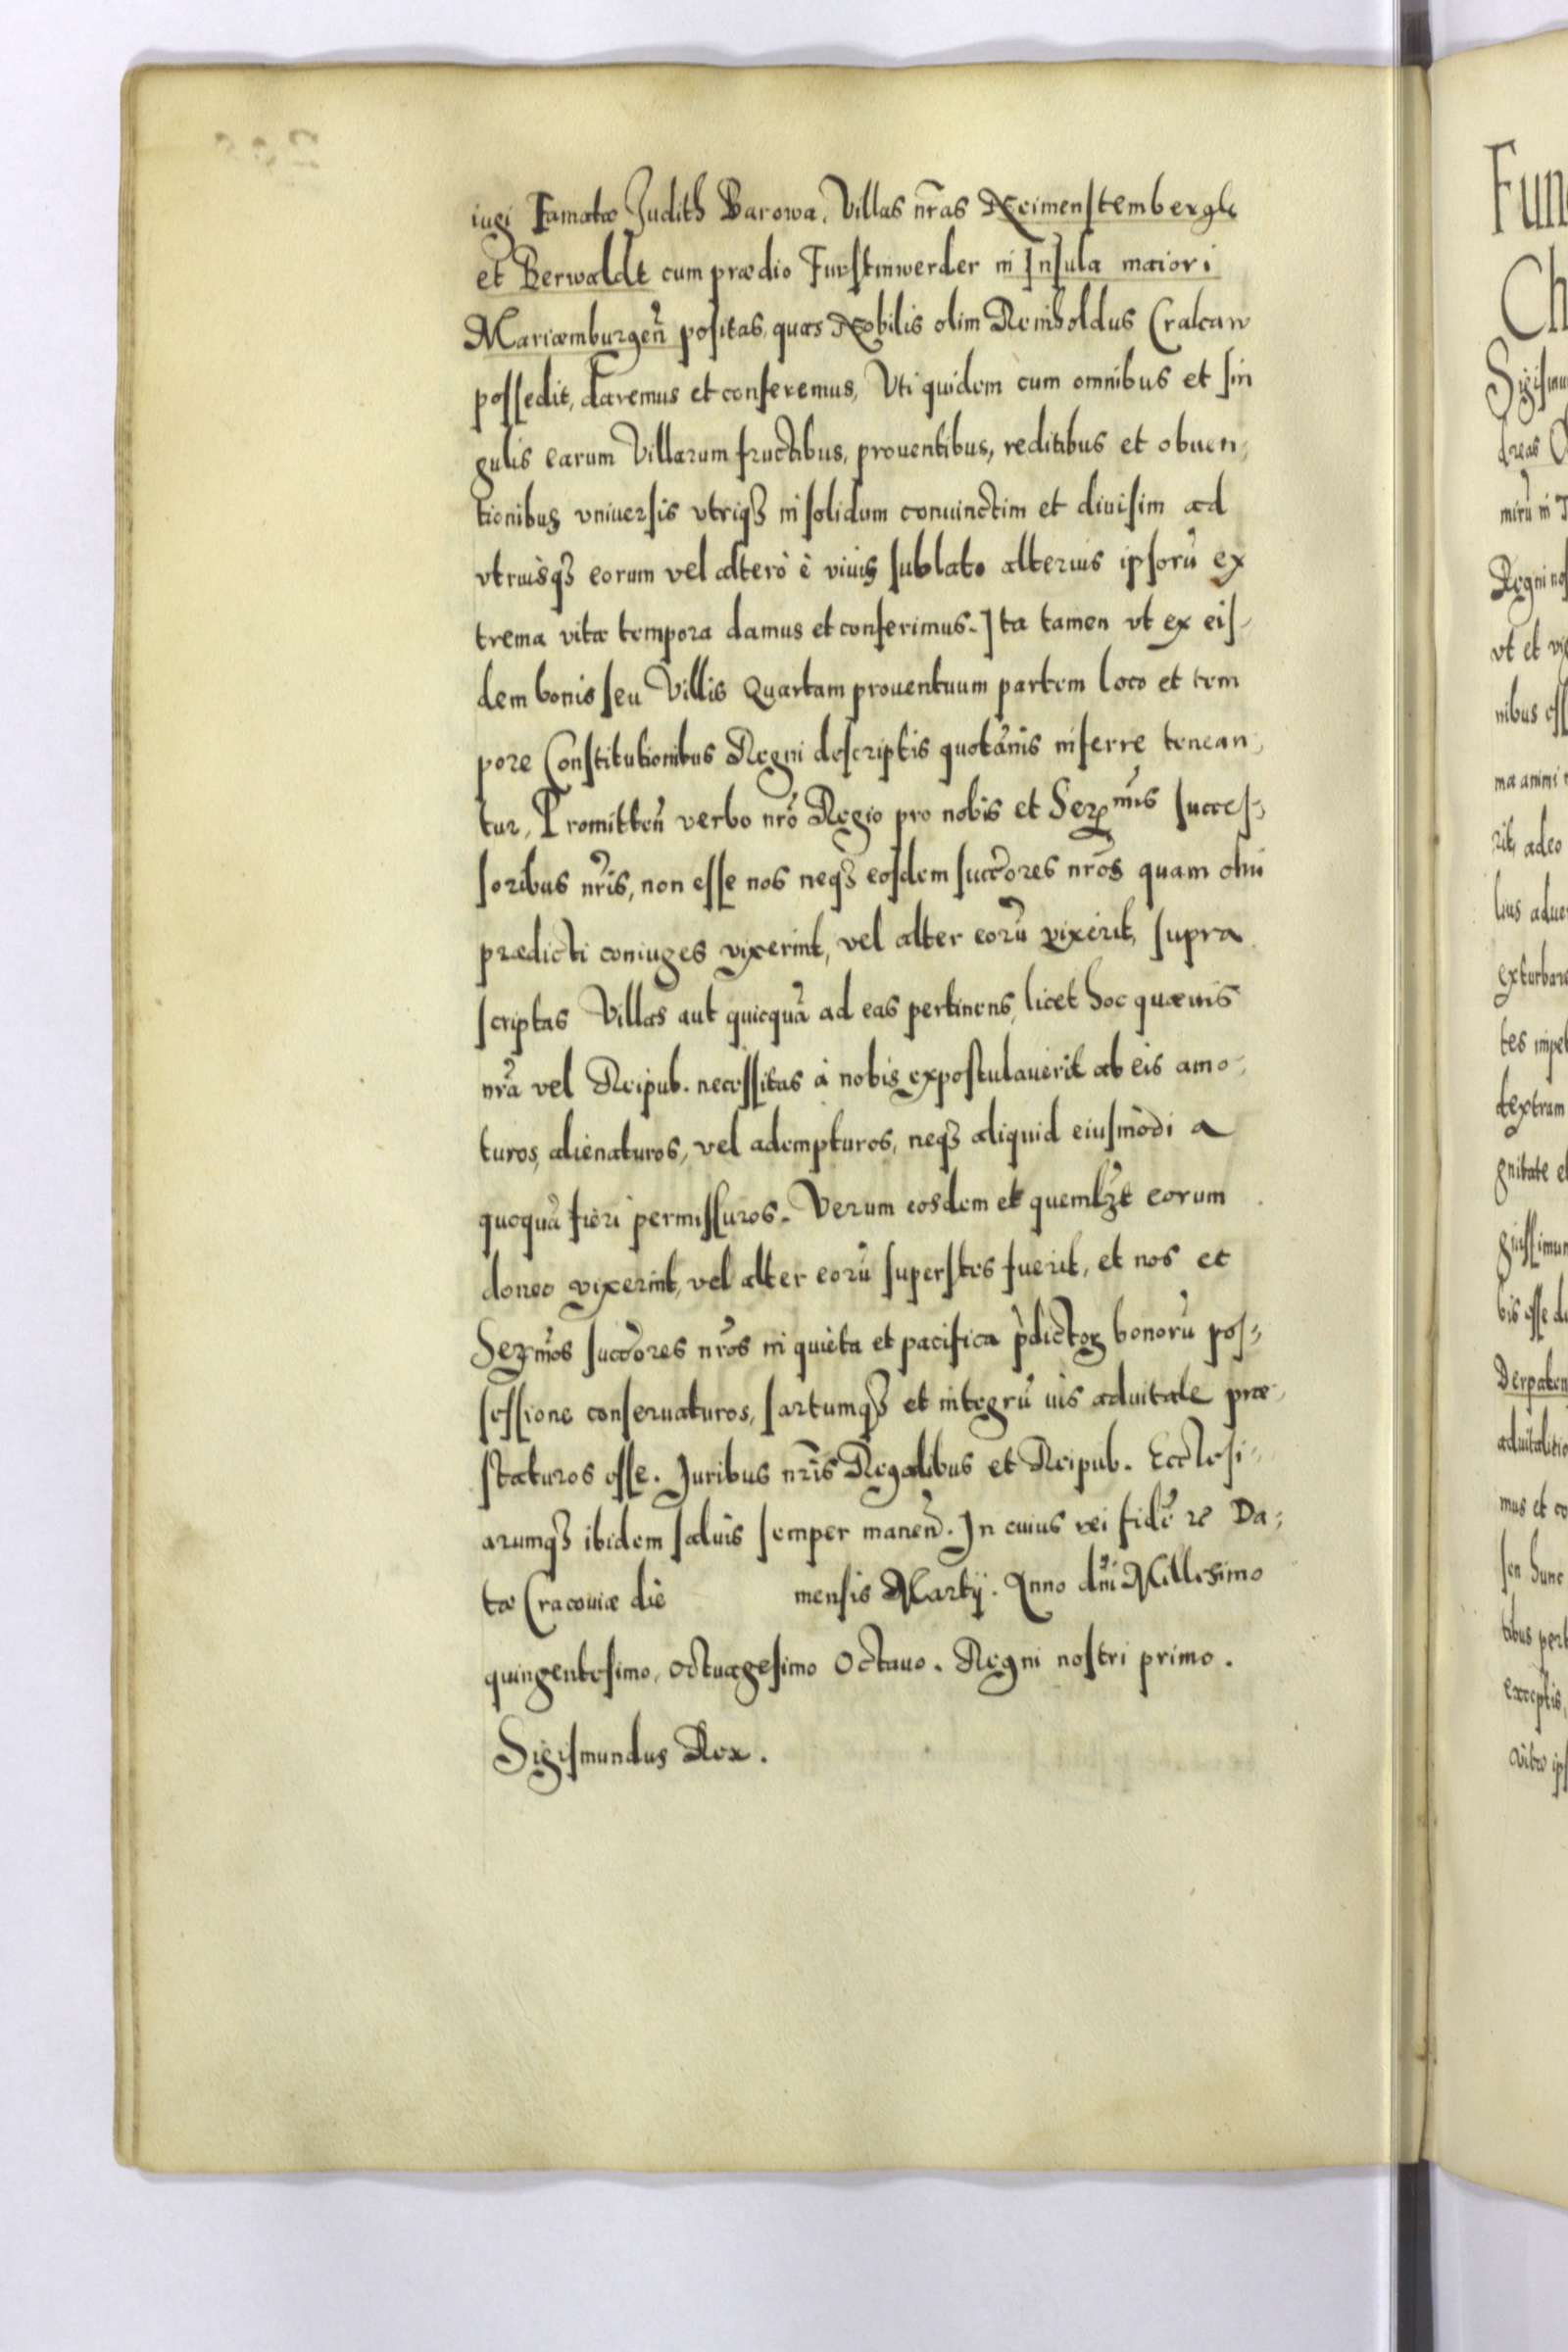 iugi Famatæ Judith Barowa, Villas nr̃as Neimenstembergk
et Berwaldt cum prædio Furstinwerder in Insula maiori
Mariæmburgeñ positas, quas Nobilis olim Reinholdus Cralcaw
possedit, daremus et conferemus, Vti quidem cum omnibus et sin
gulis earum Villarum fructibus, prouentibus, reditibus et obuen-
tionibus vniuersis vtriqȝ in solidum coniunctim et diuisim ad
vtriusqȝ eorum vel altero è viuis sublato alterius ipsorũ ex
trema vitæ tempora damus et conferimus. Ita tamen vt ex eis-
dem bonis seu Villis Quartam prouentuum partem loco et tem
pore Constitutionibus Regni descriptis quotãnis inferre tenean-
tur, Promitteñ verbo nrõ Regio pro nobis et Serᵐⁱˢ succes-
soribus nr̃is, non esse nos neqȝ eosdem succ̃ores nrõs quam diu
prædicti coniuges vixerint, vel alter eorũ vixerit, supra
scriptas Villas aut quicquã ad eas pertinens, licet hoc quæuis
nr̃a vel Reipub. necessitas à nobis expostulauerit ab eis amo-
turos, alienaturos, vel adempturos, neqȝ aliquid eiusmodi a
quoquã fieri permissuros. Verum eosdem et quemlȝt eorum
donec vixerint, vel alter eorũ superstes fuerit, et nos et
Serm̃os succ̃ores nrõs in quieta et pacifica p̀dictoꝝ bonorũ pos-
sessione conseruaturos, sartumqȝ et integrũ ius aduitale præ-
staturos esse. Juribus nr̃is Regalibus et Reipub. Ecclesi-
arumqȝ ibidem saluis semper maneñ. In cuius rei fidẽ ꝛc Da-
tæ Cracouiæ die mensis Martij. Anno dñi Millesimo
quingentesimo, octuagesimo Octauo. Regni nostri primo.
Sigismundus Rex.